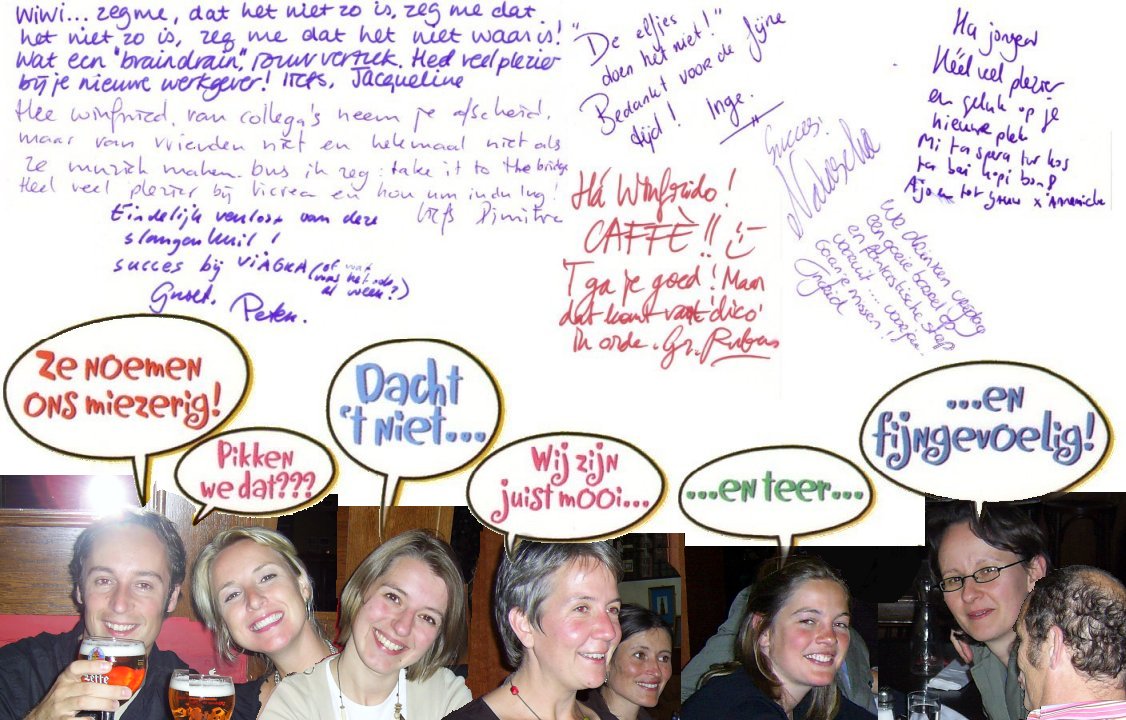 Wiwi... zeg me, dat het niet zo is, zeg me dat
het niet zo is, zeg me dat het niet waar is!
Wat een "braindrain", jouw vertrek. Heel veel plezier
bij je nieuwe werkgever! liefs, Jacqueline
Hee Winfried, van collega's neem je afscheid,
maar van vrienden niet en helemaal niet als
ze muziek maken. Dus ik zeg: take it to the bridge
Heel veel plezier bij Vicrea en hou um in du lug!
liefs Dimitra
Eindelijk verlost van deze
slangenkuil!
succes bij VIAGRA (of wat
was het ook
al weer?)
Groet,
Peter.
"De elfjes
doen het niet!"
Bedankt voor de fijne
tijd! Inge.
Succes!
Natascha
Há Winfrido!
CAFFÈ!!
'T ga je goed! Maar
dat komt vast 'dico'
in orde. Gr. Ruben
Ha jongen
Héél veel plezier
en geluk op je
nieuwe plek
Mi ta spera tur kos
ta bai hopi bon!
Ajo en tot gauw x Annemiek
We drinken vrijdag
een goeie borrel op
een fantastische stap
vooruit... voor jou.
Gaan je missen!!
Ingrid
Ze noemen
ons miezerig!
Pikken
we dat???
Dacht
't niet...
Wij zijn
juist mooi...
...en teer...
...en
fijngevoelig!
Leffe